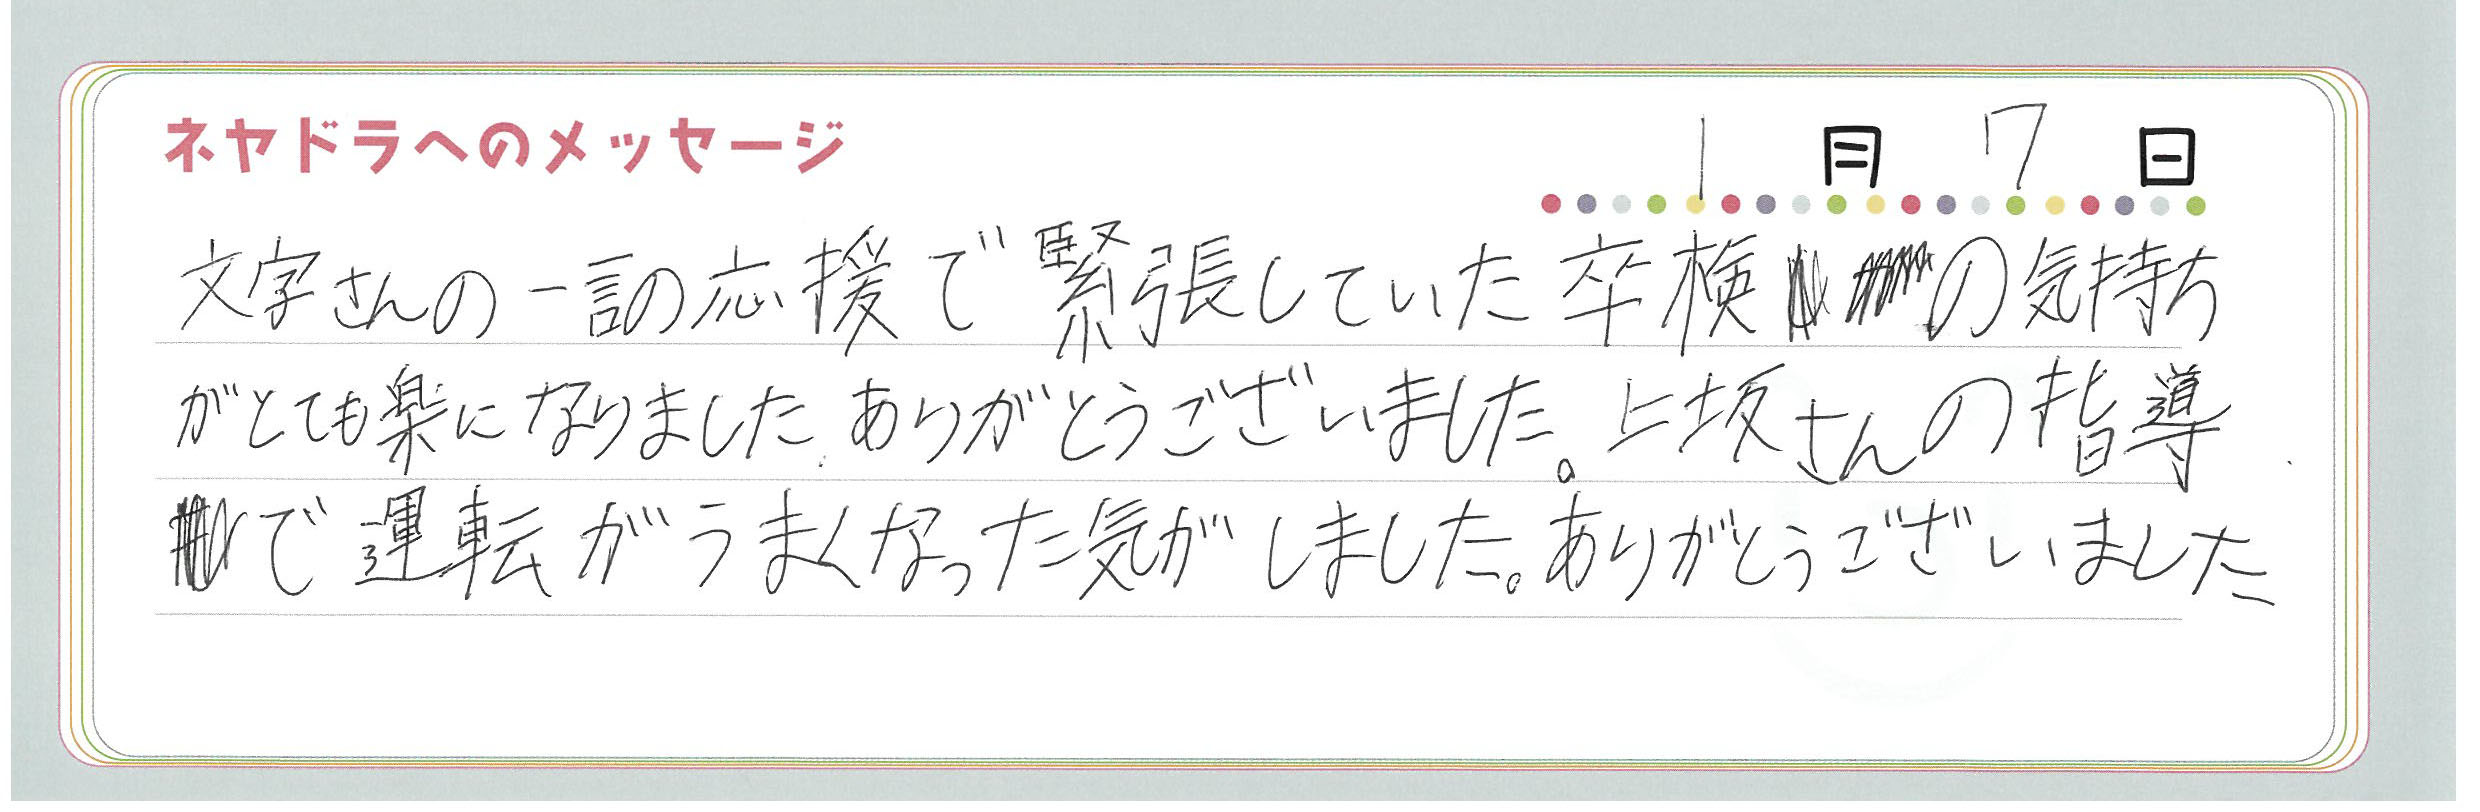 ネヤドラへのメッセージ
1月7日
文字さんの一言の応援で緊張していた卒検の気持ち
がとても楽になりました.ありがとうございました。上坂さんの指導
で運転がうまくなった気がしました。ありがとうございました